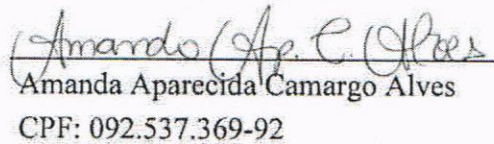 Amanda Ap. C. Alves
Amanda Aparecida Camargo Alves
CPF: 092.537.369-92